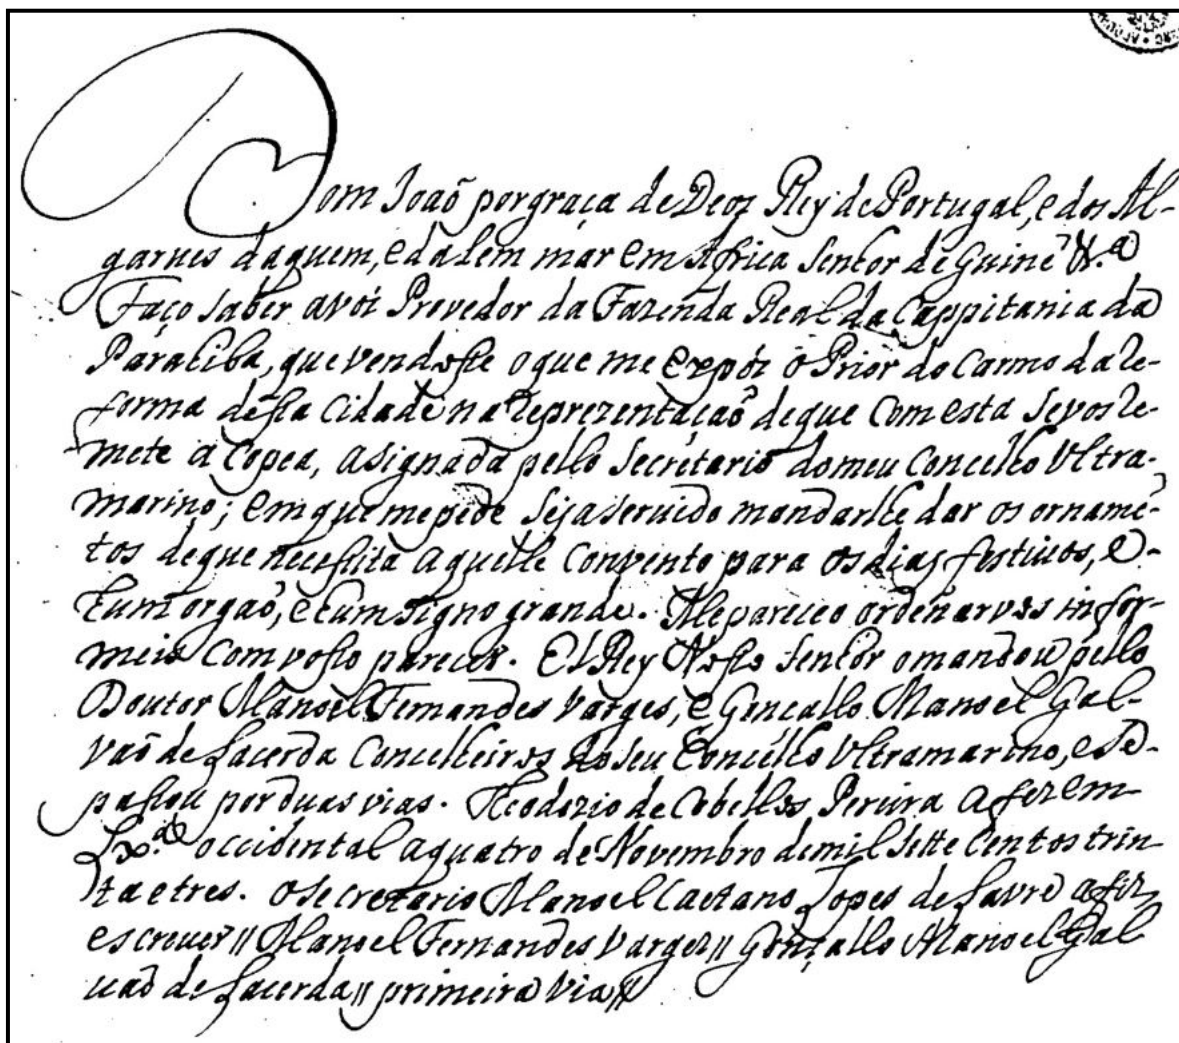 Dom Joaõ por graça de Deoz Rey de Portugal, e dos Al-
garues daquem, e dalem mar em Africa Senhor de Guine &.ª
Faço saber avós Provedor da Fazenda Real da Cappitania da
Paraiba, que vendosse o que me expós o Prior do Carmo da Re-
forma dessa Cidade na representaçaõ de que com esta se vos re-
mete a Copea, asignada pello Secretario do meu Concelho Ultra-
marino; em que me pede seja servido mandarlhe dar os orname-
tos de que necessita aquelle Convento para os dias festivos, e
hum orgaõ, e hum signo grande. Me pareceo ordenarvos infor-
meis com vosso parecer. El Rey Nosso Senhor o mandou pello
Doutor Manoel Fernandes Varges, e Goncallo Manoel Gal-
vaõ de Lacerda Concelheiros do seu Concelho Ultramarino, e se
passou por duas vias. Theodozio de Cobellos Pereira a fez em
Lx.ª occidental a quatro de Novembro de mil sette centos trin-
ta e tres. o Secretario Manoel Caetano Lopes de Lavre a fez
escrever || Manoel Fernandes Vargez || Gonçallo Manoel Gal
uaõ de Lacerda || primeira via ||